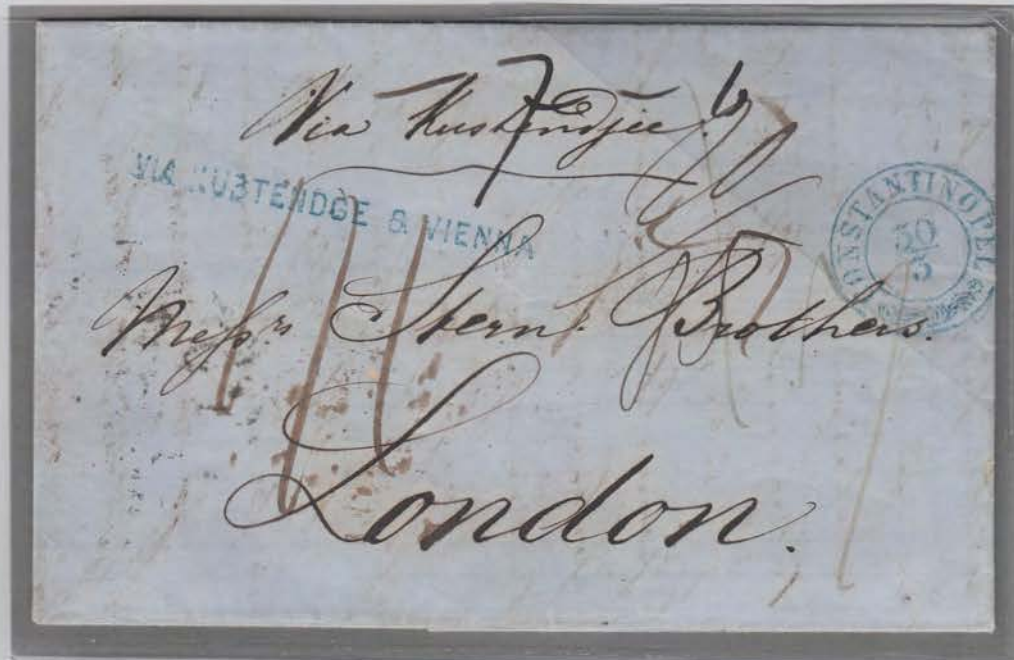 Via Kustendjie.
VIA KUSTENDGE & VIENNA
CONSTANTINOPEL
30
5
Messrs Stern Brothers.
London.